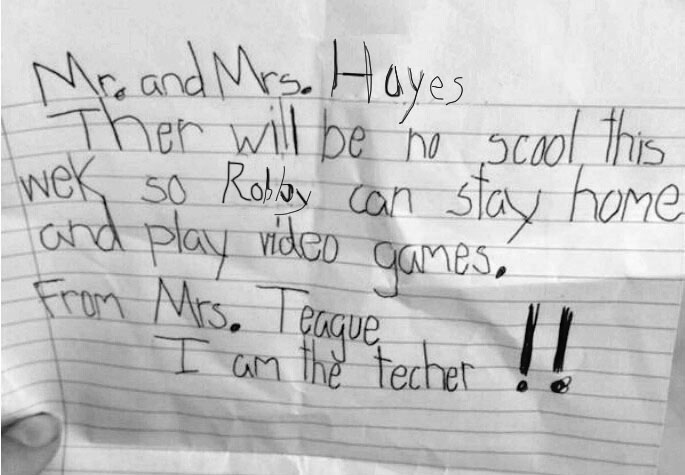 Mr. and Mrs. Hayes
Ther will be no scool this
wek so Robby can stay home
and play video games.
From Mrs. Teague
I am the techer !!